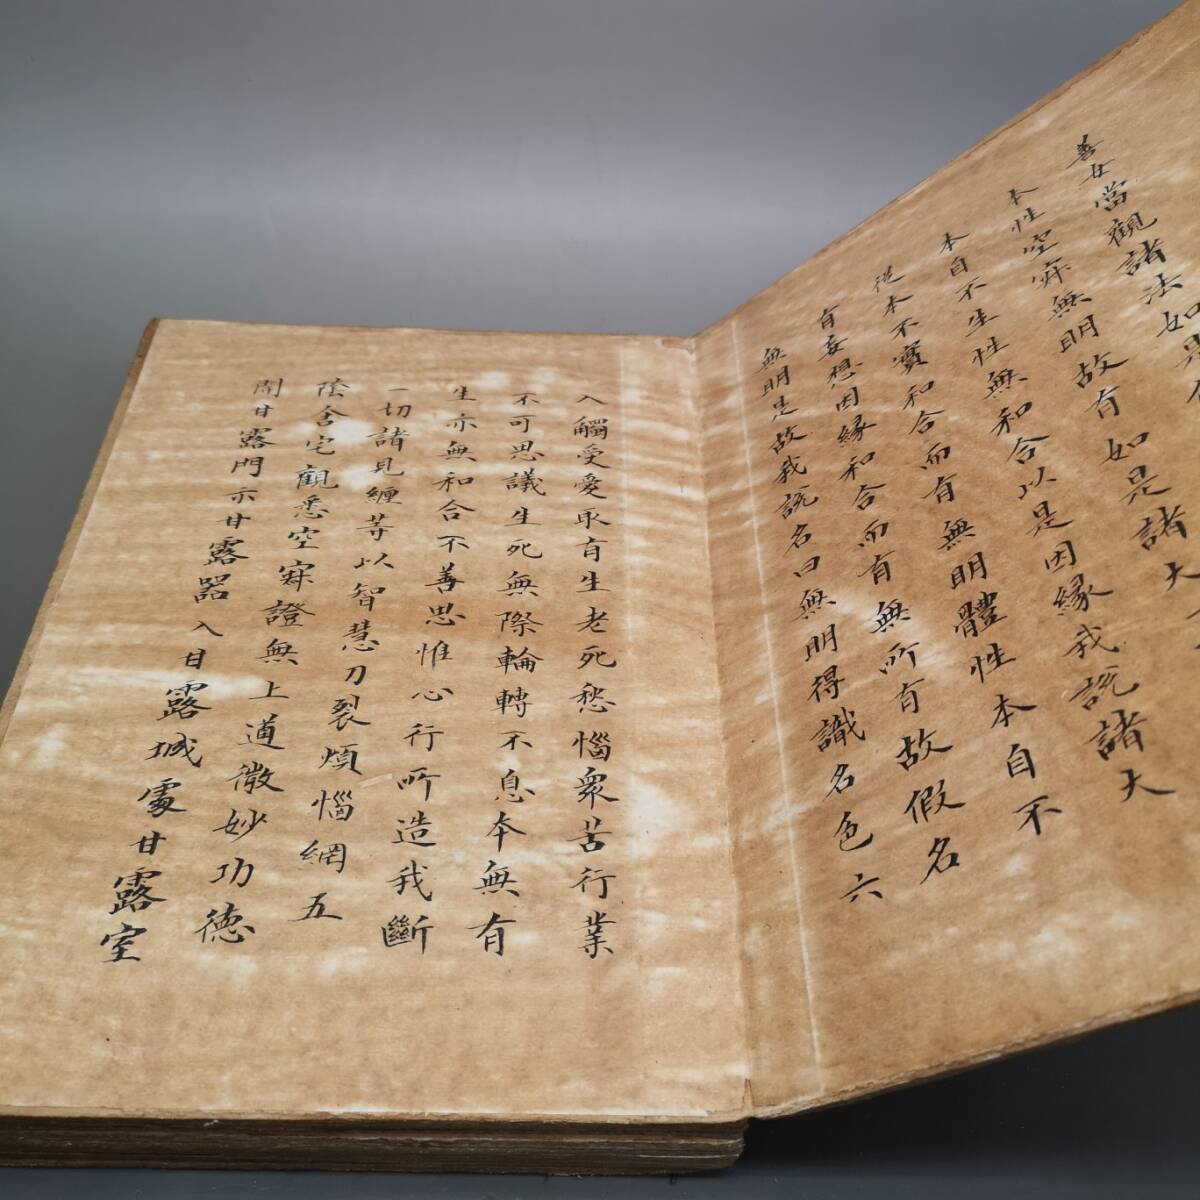 善女當觀諸法如是
本性空寂無明故有如是諸大
本自不生性無和合以是因緣我說諸大
從本不實和合而有無明體性本自不
有妄想因緣和合而有無所有故假名
無明是故我說名曰無明得識名色六
入觸受愛取有生老死愁惱衆苦行業
不可思議生死無際輪轉不息本無有
生亦無和合不善思惟心行所造我斷
一切諸見纏等以智慧刀裂煩惱網五
陰舍宅觀悉空寂證無上道微妙功德
開甘露門示甘露器入甘露城處甘露室